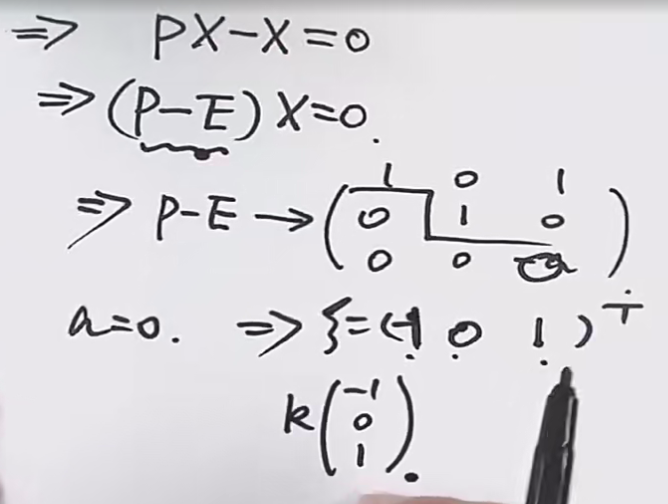 ⇒ PX-X=0
⇒(P-E)X=0.
1 0 1
⇒ P-E→(0 1 0)
0 0 a
a=0. ⇒ ξ=(-1 0 1)ᵀ
-1
k(0).
1